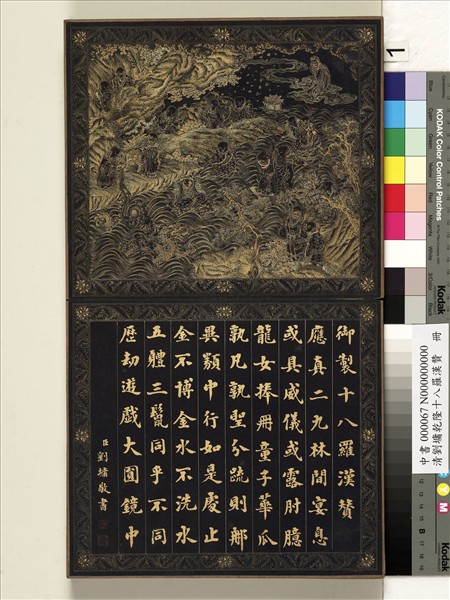 御製十八羅漢贊
應真二九林間宴息
或具威儀或露肘臆
龍女捧冊童子華瓜
孰凡孰聖分疏則那
異類中行如是處止
金不博金水不洗水
五體三同乎不同
歷劫遊戲大圓鏡中
臣劉墉敬書
1
KODAK Color Control Patches
Blue
Cyan
Green
Yellow
Red
Magenta
White
3/Color
Black
Kodak
中書 000067 N000000000
清劉墉乾隆十八羅漢贊 冊
Y M
Kodak